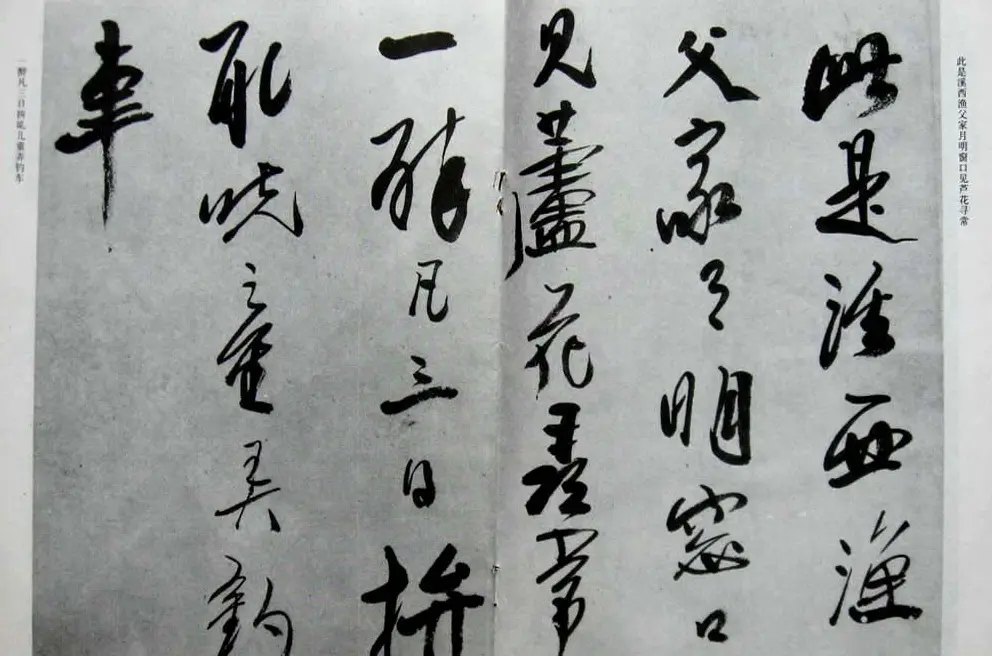 此是溪西渔父家月明窗口见芦花寻常
此是溪西漁
父家月明窗口
見蘆花尋常
一醉凡三日拚
兒童弄釣
車
一醉凡三日儿童弄钓车